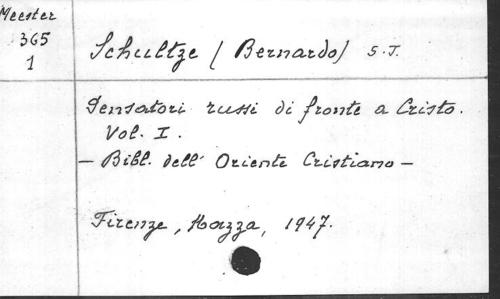 Meester
365
1
Schultze (Bernardo) S.J.
Pensatori russi di fronte a Cristo.
Vol. I.
- Bibl. dell' Oriente Cristiano -
Firenze, Mazza, 1947.